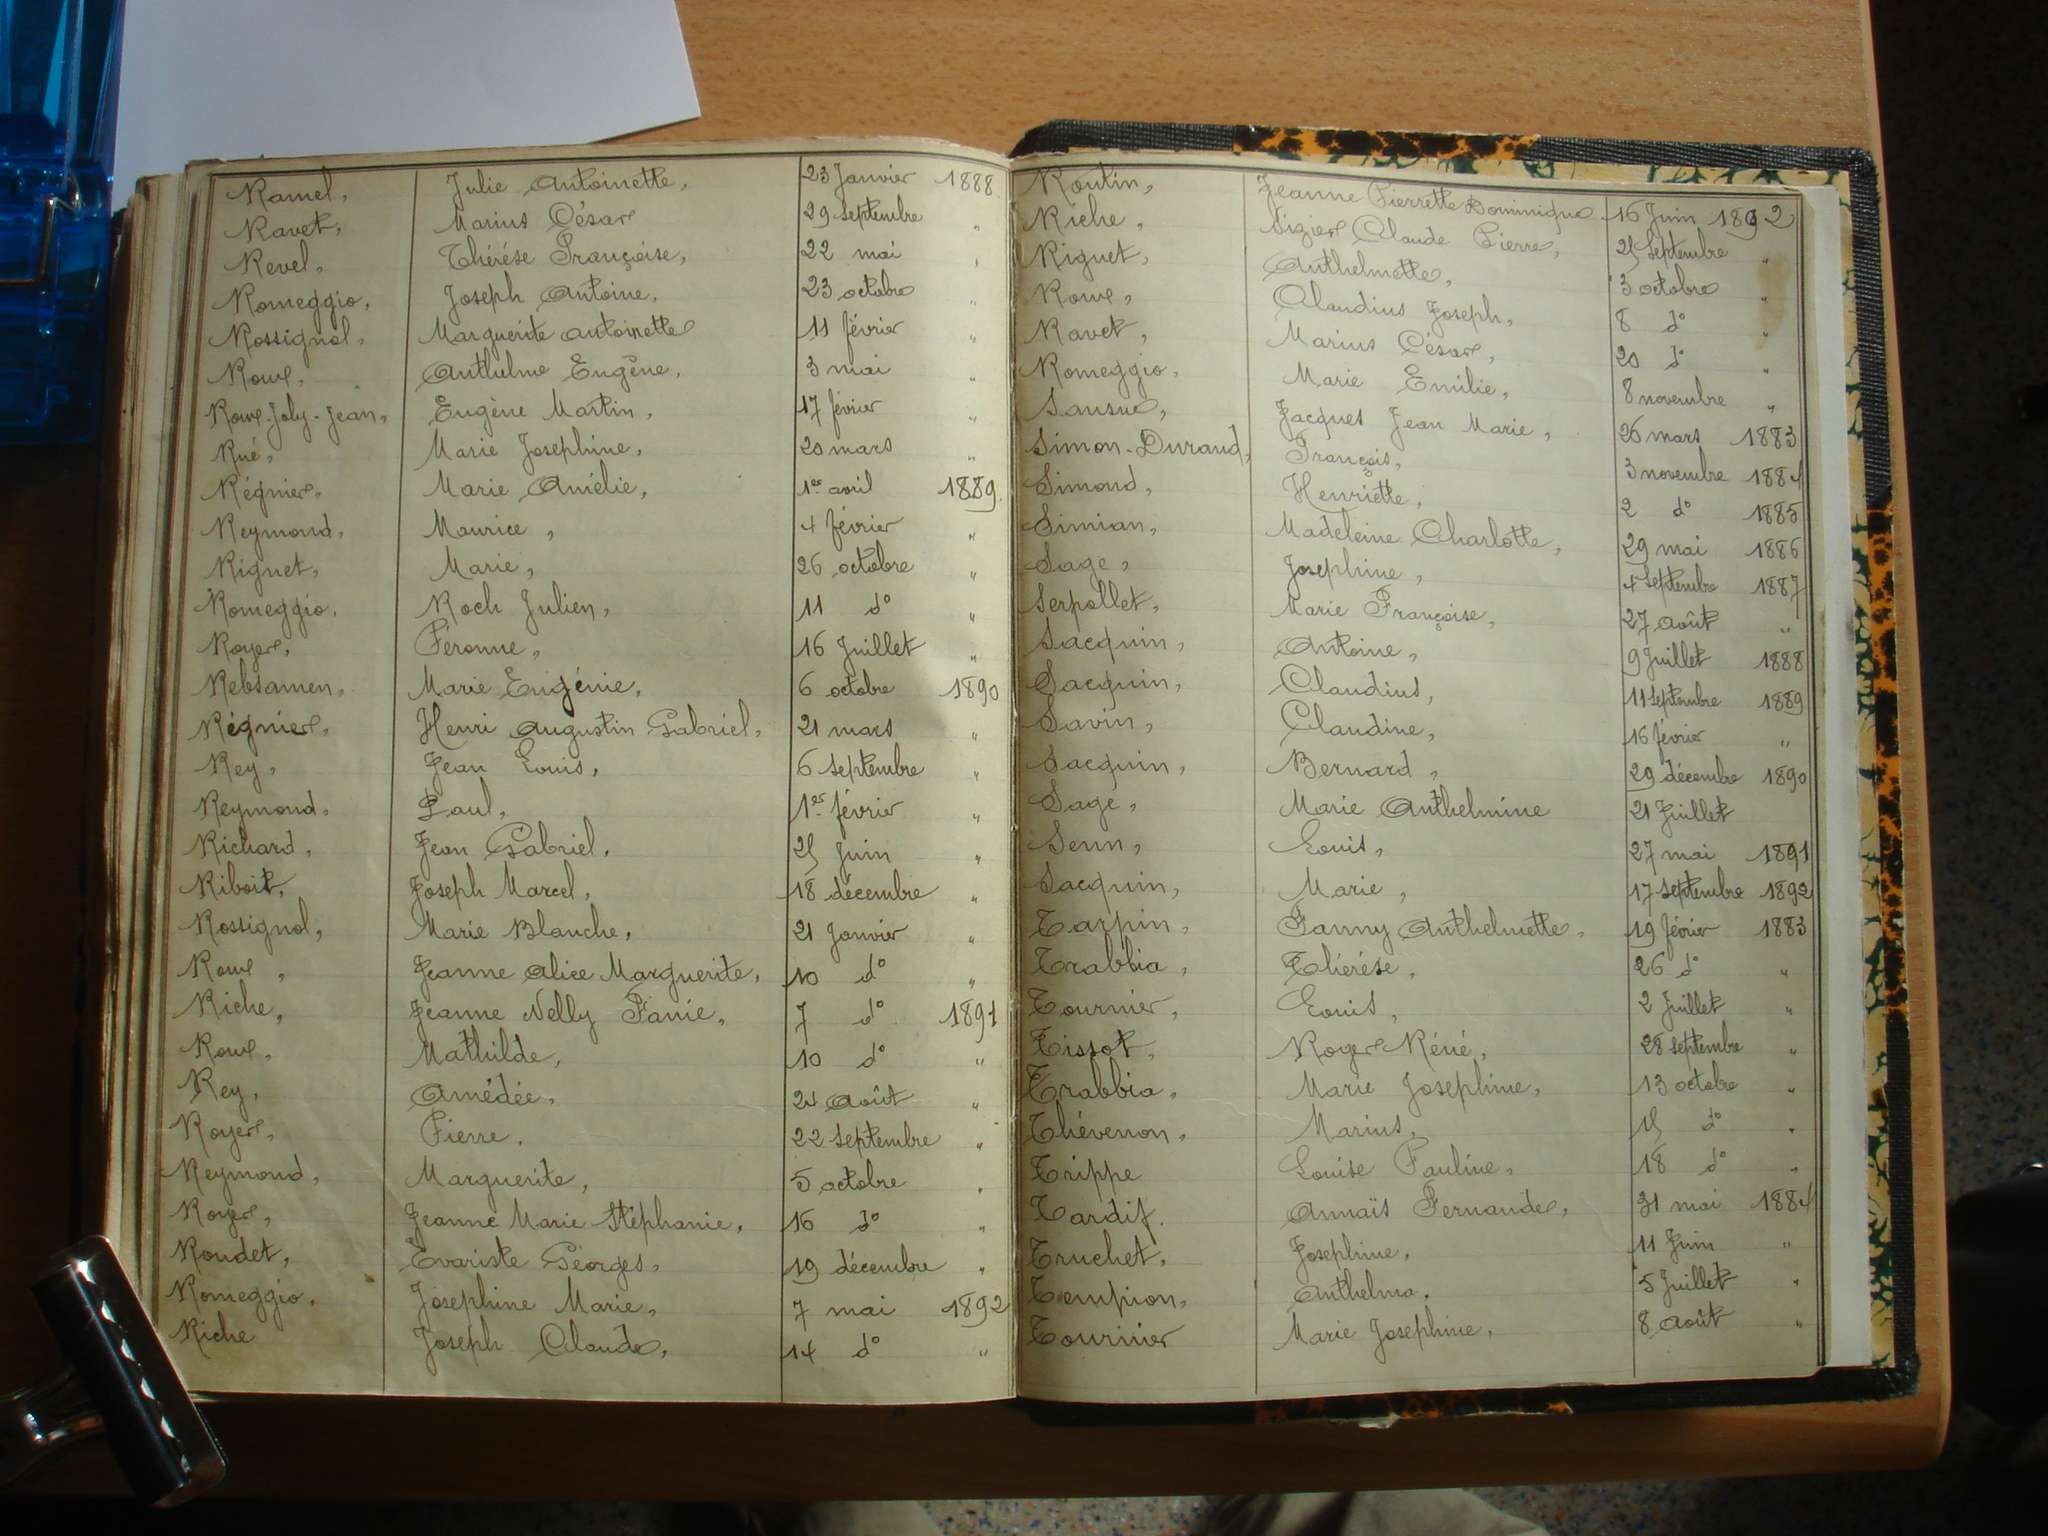 Ramel, Julie Antoinette, 23 Janvier 1888
Ravet, Marius César 29 septembre "
Revel, Thérése Françoise, 22 mai "
Romeggio, Joseph Antoine, 23 octobre "
Rossignol, Marguerite Antoinette 11 février "
Roux, Anthelme Eugène, 3 mai "
Roux-Joly-Jean, Eugène Martin, 17 février "
Rué, Marie Josephine, 20 mars "
Régnier, Marie Amélie, 1er avril 1889.
Reymond, Maurice, 4 février "
Riguet, Marie, 26 octobre "
Romeggio, Roch Julien, 11 do "
Royer, Péronne, 16 Juillet "
Rebsamen, Marie Eugénie, 6 octobre 1890
Régnier, Henri Augustin Gabriel, 21 mars "
Rey, Jean Louis, 6 septembre "
Reymond, Paul, 1er février "
Richard, Jean Gabriel, 25 Juin "
Riboit, Joseph Marcel, 18 décembre "
Rossignol, Marie Blanche, 21 Janvier "
Roux, Jeanne Alice Marguerite, 10 do "
Riche, Jeanne Nelly Fanie, 7 do 1891
Roux, Mathilde, 10 do "
Rey, Amédée, 24 Août "
Royer, Pierre, 22 septembre "
Reymond, Marguerite, 5 octobre "
Royer, Jeanne Marie Stéphanie, 16 do "
Roudet, Evariste Géorges, 19 décembre "
Romeggio, Josephine Marie, 7 mai 1892
Riche Joseph Claude, 14 do "
Routin, Jeanne Pierrette Dominique 16 Juin 1892
Riche, Sizier Claude Pierre, 25 septembre "
Riguet, Anthelmette, 3 octobre "
Roux, Claudius Joseph, 8 do "
Ravet, Marius César, 20 do "
Romeggio, Marie Emilie, 8 novembre "
Sansue, Jacques Jean Marie, 26 mars 1883
Simon-Durand, François, 3 novembre 1884
Simond, Henriette, 2 do 1885
Simian, Madeleine Charlotte, 29 mai 1886
Sage, Josephine, 4 septembre 1887
Serpollet, Marie Françoise, 27 août "
Sacquin, Antoine, 9 Juillet 1888
Sacquin, Claudius, 11 septembre 1889
Savin, Claudine, 16 février "
Sacquin, Bernard, 29 décembre 1890
Sage, Marie Anthelmine 21 Juillet
Senn, Louis, 27 mai 1891
Sacquin, Marie, 17 septembre 1892
Tarpin, Fanny Anthelmette, 19 février 1883
Trabbia, Thérése, 26 do "
Tournier, Louis, 2 Juillet "
Tissot, Roger Réné, 28 septembre "
Trabbia, Marie Josephine, 13 octobre "
Thévenon, Marius, 15 do "
Trippe Louise Pauline, 18 do "
Tardif. Annaïs Fernande, 31 mai 1884
Truchet, Josephine, 11 Juin "
Tempion, Anthelma, 5 Juillet "
Tournier Marie Josephine, 8 août "